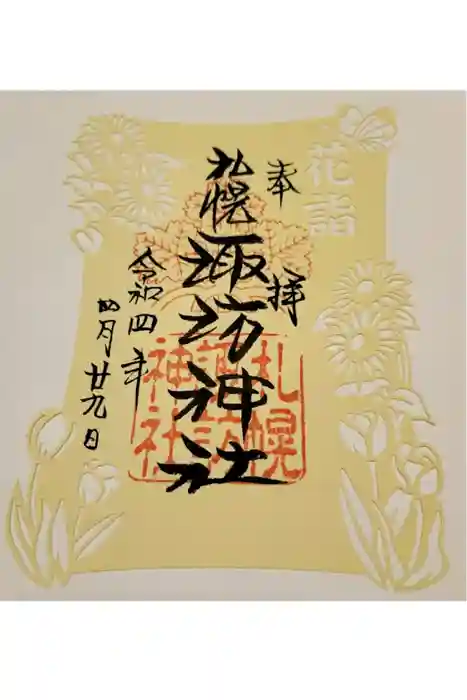 花詣
奉拝
札幌諏訪神社
令和四年
四月廿九日
札幌
諏訪
神社